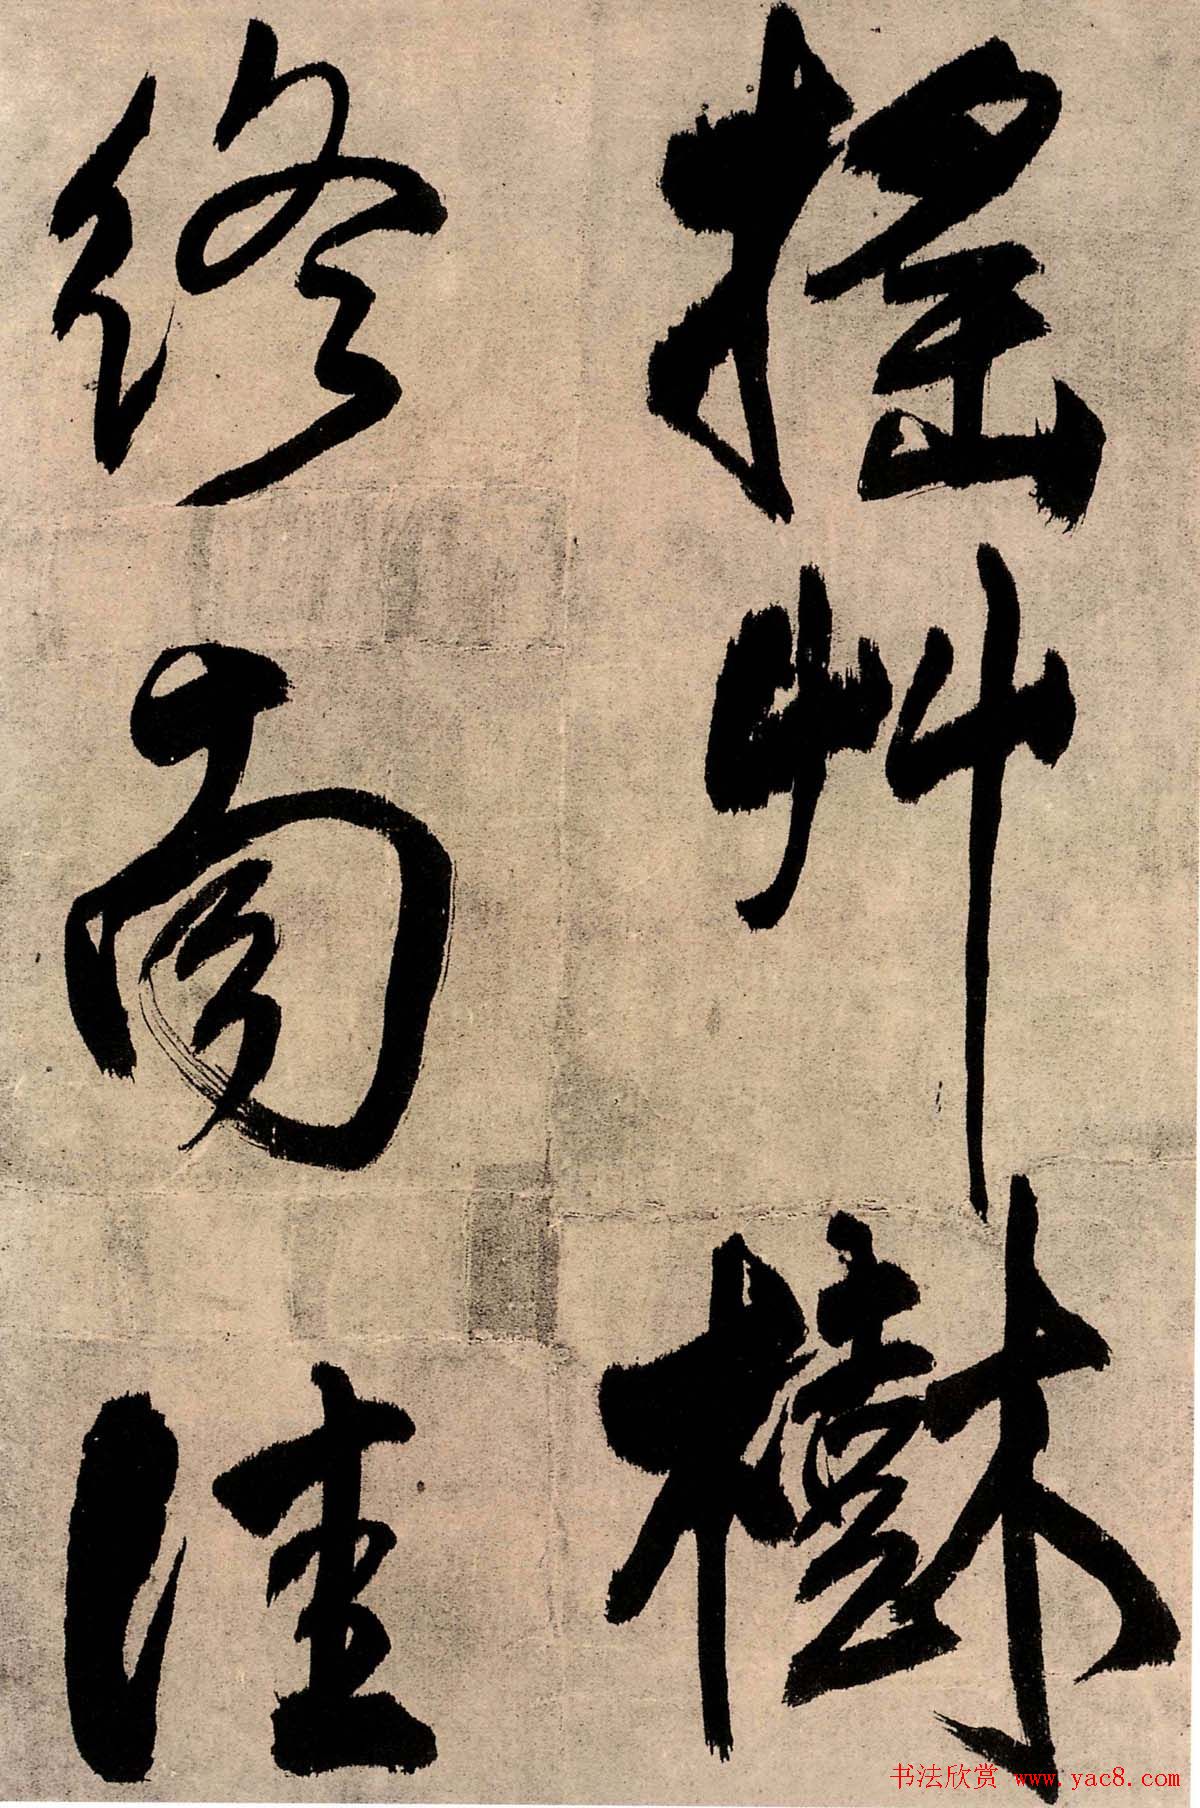 搖艸樹
終南佳
书法欣赏 www.yac8.com